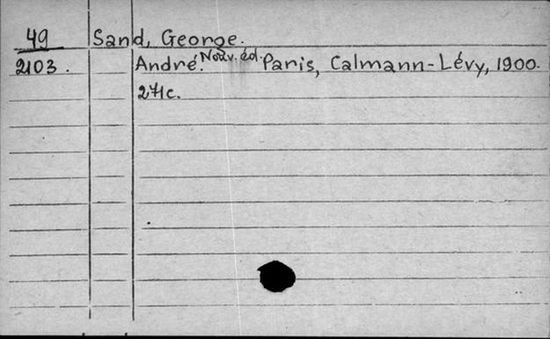 49 Sand, George.
2103. André. Nouv. éd. Paris, Calmann-Lévy, 1900.
271c.